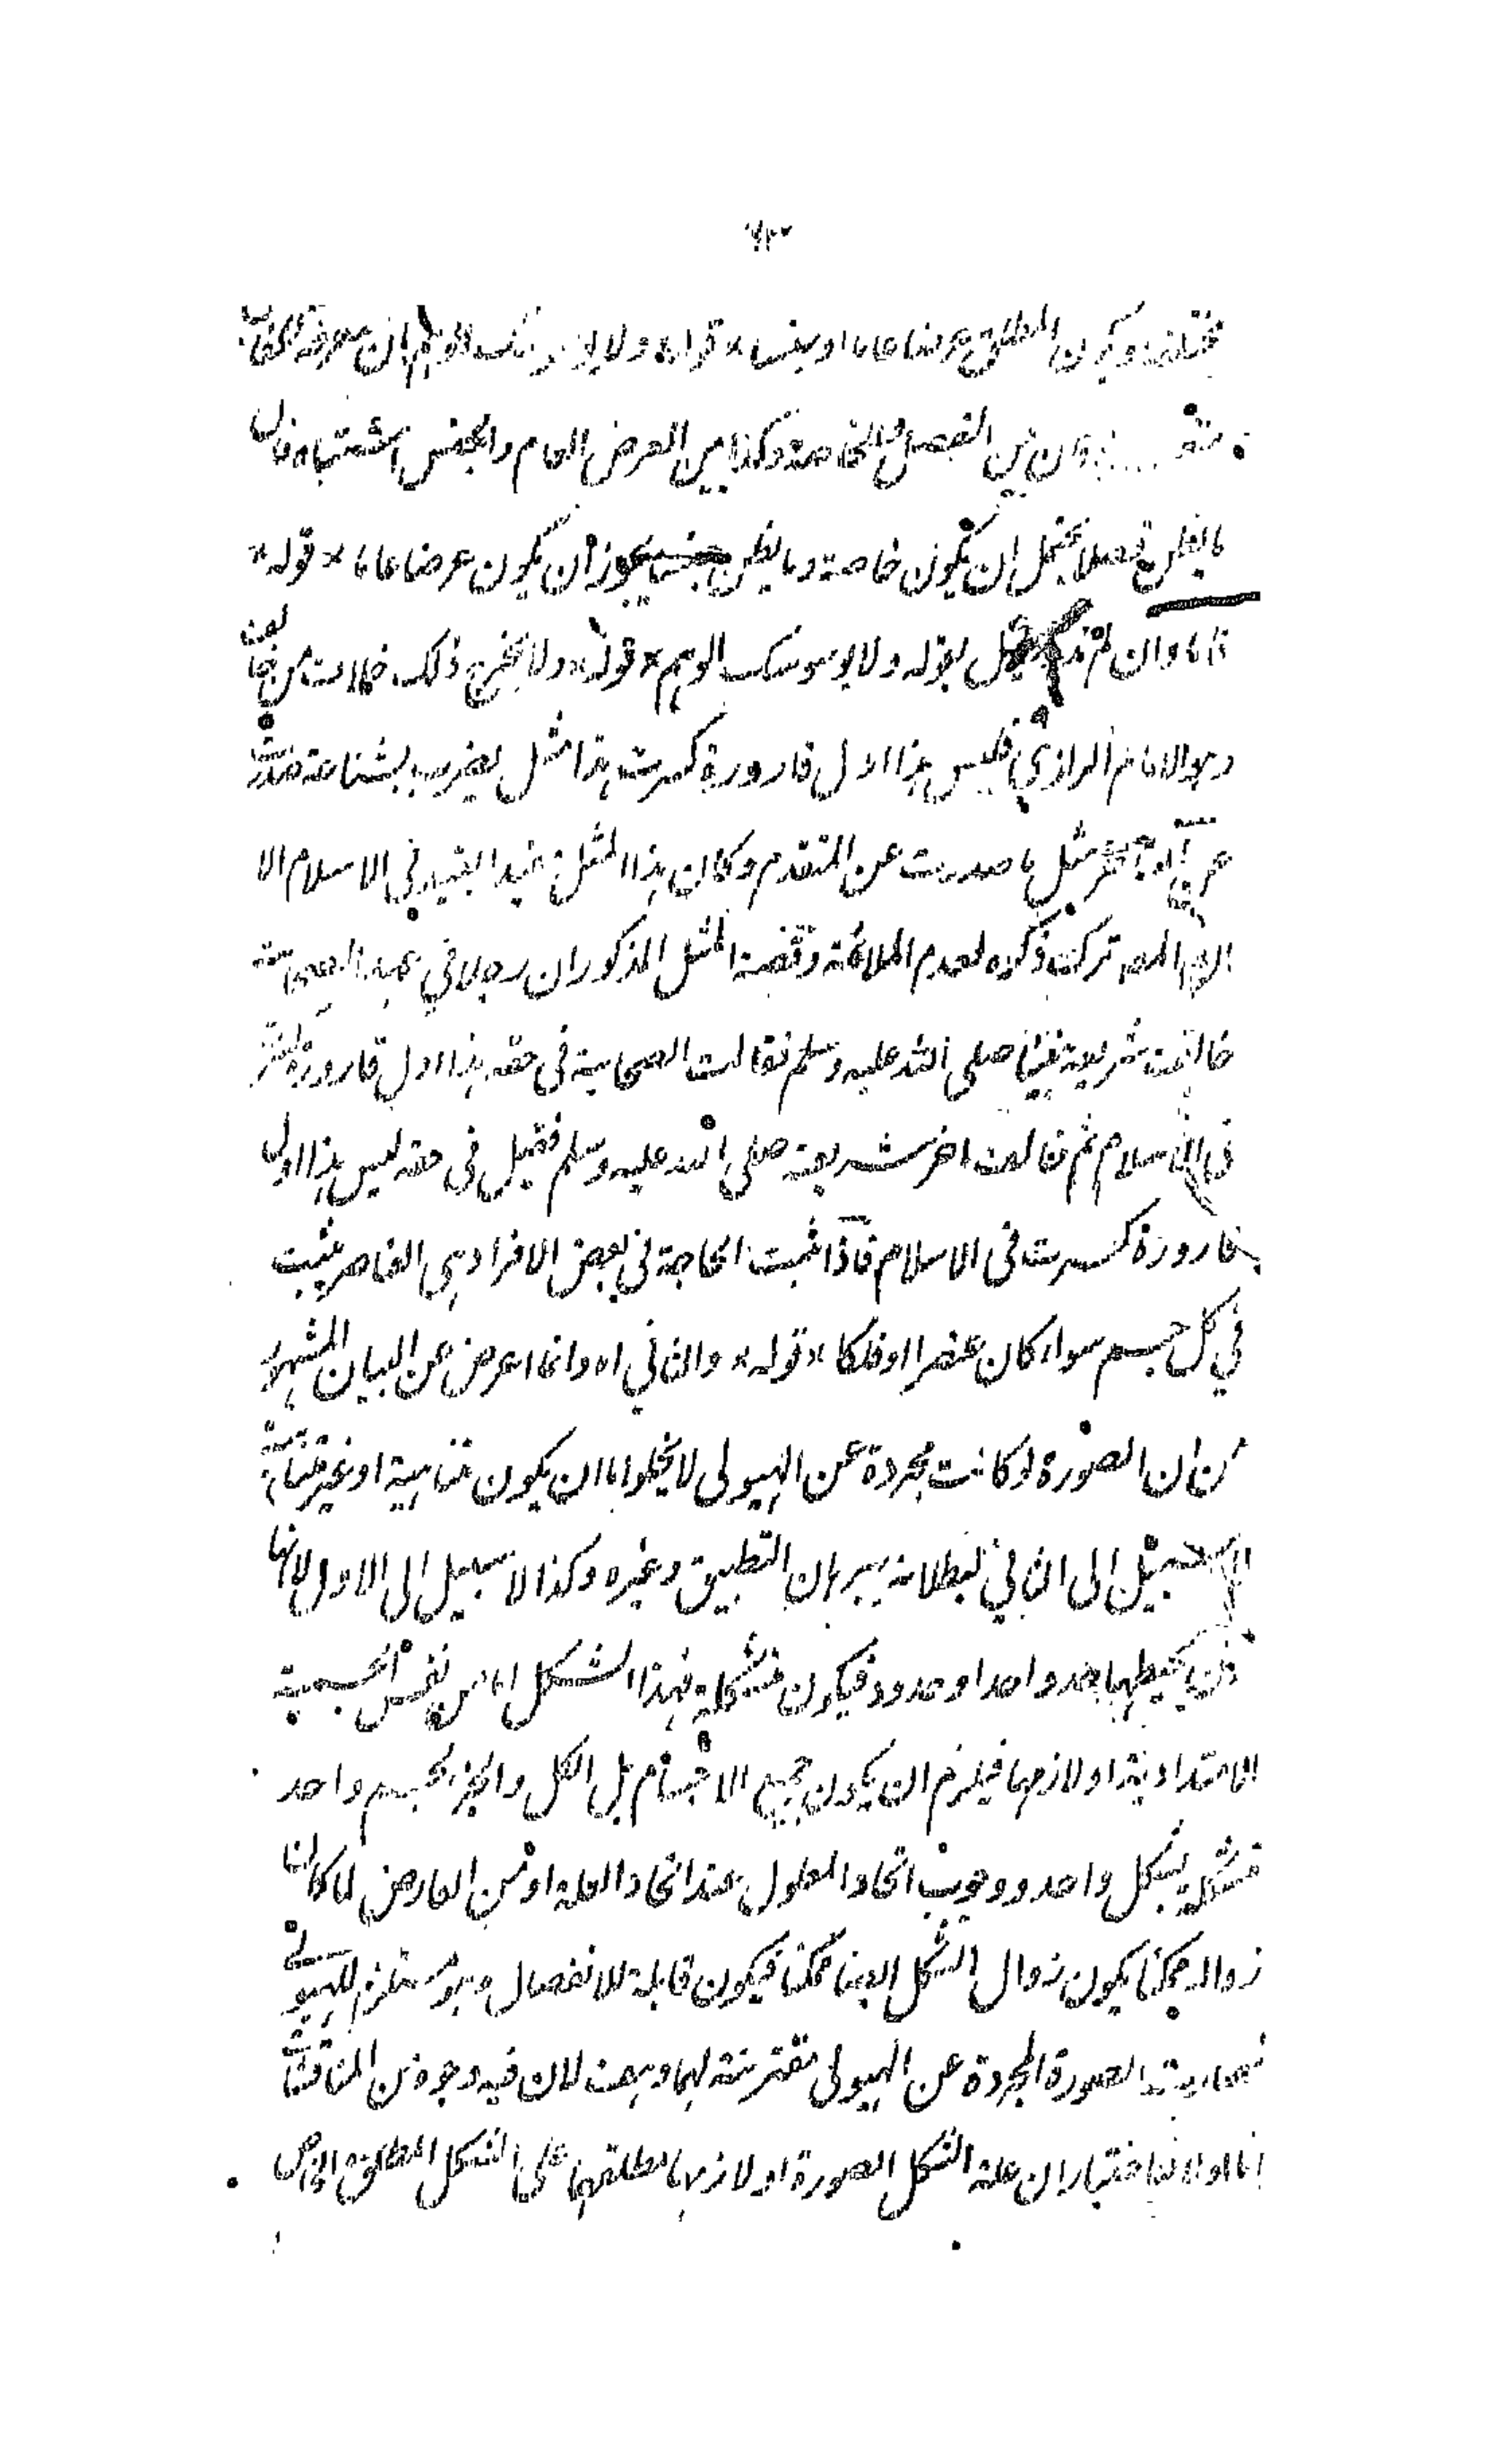 مختلفة ويكون المطلق عرضا عاما او جنسا * قوله * ولا يوسوسنك الوهم ان معرفة الحقائق
متعسرة فان بين الفصل والخاصة وكذا بين العرض العام والجنس اشتباها فان
ما يظن فصلا يحتمل ان يكون خاصة وما يظن جنسا يجوز ان يكون عرضا عاما * قوله *
بقوله ولا يوسوسنك الوهم * قوله * ولا يخرج ذلك خلاف من خالف
وهو الامام الرازي فليس هذا اول قارورة كسرت هذا مثل يضرب بشناعة صدرت
عن مثل ما صدرت عن المتقدم وكان هذا المثل مقيدا بقيد في الاسلام الا
ان المصـ ترك ذكره لعدم الملائمة وقصة المثل المذكور ان رجلا في عهد الصحابة
خالفت شريعة نبينا صلى الله عليه وسلم فقالت الصحابة في حقه هذا اول قارورة كسرت
في الاسلام ثم خالف اخر شريعته صلى الله عليه وسلم فقيل في حقه ليس هذا اول
قارورة كسرت في الاسلام فاذا ثبت الحاجة في بعض الافراد هي العناصر يثبت
في كل جسم سواء كان عنصرا او فلكا * قوله * والثاني اه وانما اعرض عن البيان المشهور
من ان الصورة لو كانت مجردة عن الهيولى لا يخلوا اما ان يكون متناهية او غير متناهية
لا سبيل الى الثاني لبطلانه ببرهان التطبيق وغيره وكذا لا سبيل الى الاول لانها
يحيطها حد واحد او حدود فيكون متشكلة فهذا الشكل اما من نفس الجسمية
الامتدادية او لازمها فيلزم ان يكون جميع الاجسام بل الكل والجزء كجسم واحد
متشكلة بشكل واحد ووجوب اتحاد المعلول عند اتحاد العلة او من العارض لما كان
زواله ممكنا يكون زوال الشكل ايضا ممكنا فيكون قابلة للانفصال وهو مستلزم للهيولى
فصارت الصورة المجردة عن الهيولى مقترنة لها وهف لان فيه وجوه من المناقشات
اما اولا فباختيار ان علة الشكل الصورة او لازمها مطلقها على الشكل المطلق الخاص